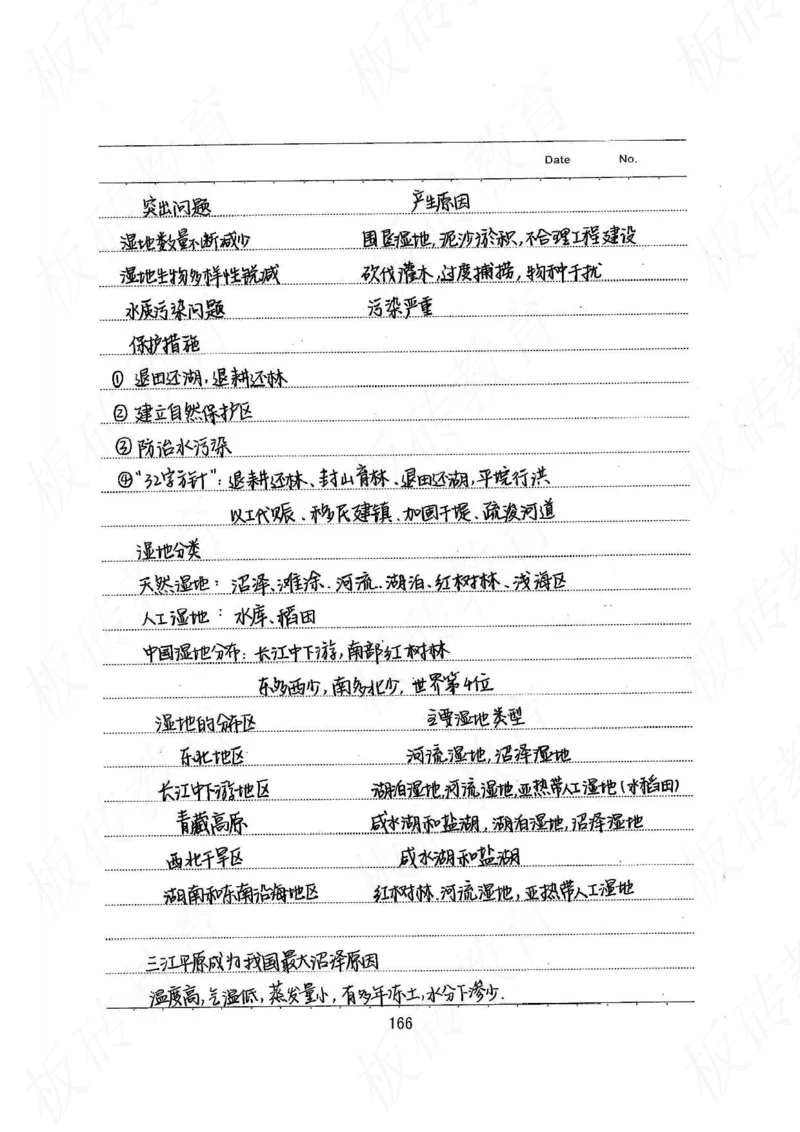 Date No.
突出问题 产生原因
湿地数量不断减少 围垦湿地,泥沙淤积,不合理工程建设
湿地生物多样性锐减 砍伐灌木,过度捕捞,物种干扰
水质污染问题 污染严重
保护措施
① 退田还湖,退耕还林
② 建立自然保护区
③ 防治水污染
④"32字方针":退耕还林、封山育林、退田还湖,平垸行洪
以工代赈、移民建镇、加固干堤、疏浚河道
湿地分类
天然湿地:沼泽、滩涂、河流、湖泊、红树林、浅海区
人工湿地:水库、稻田
中国湿地分布:长江中下游,南部红树林
东多西少,南多北少,世界第4位
湿地的分布区 主要湿地类型
东北地区 河流湿地,沼泽湿地
长江中下游地区 湖泊湿地,河流湿地,亚热带人工湿地(水稻田)
青藏高原 咸水湖和盐湖,湖泊湿地,沼泽湿地
西北干旱区 咸水湖和盐湖
湖南和东南沿海地区 红树林、河流湿地,亚热带人工湿地
三江平原成为我国最大沼泽原因
湿度高,气温低,蒸发量小,有多年冻土,水分下渗少.
166
板砖教育